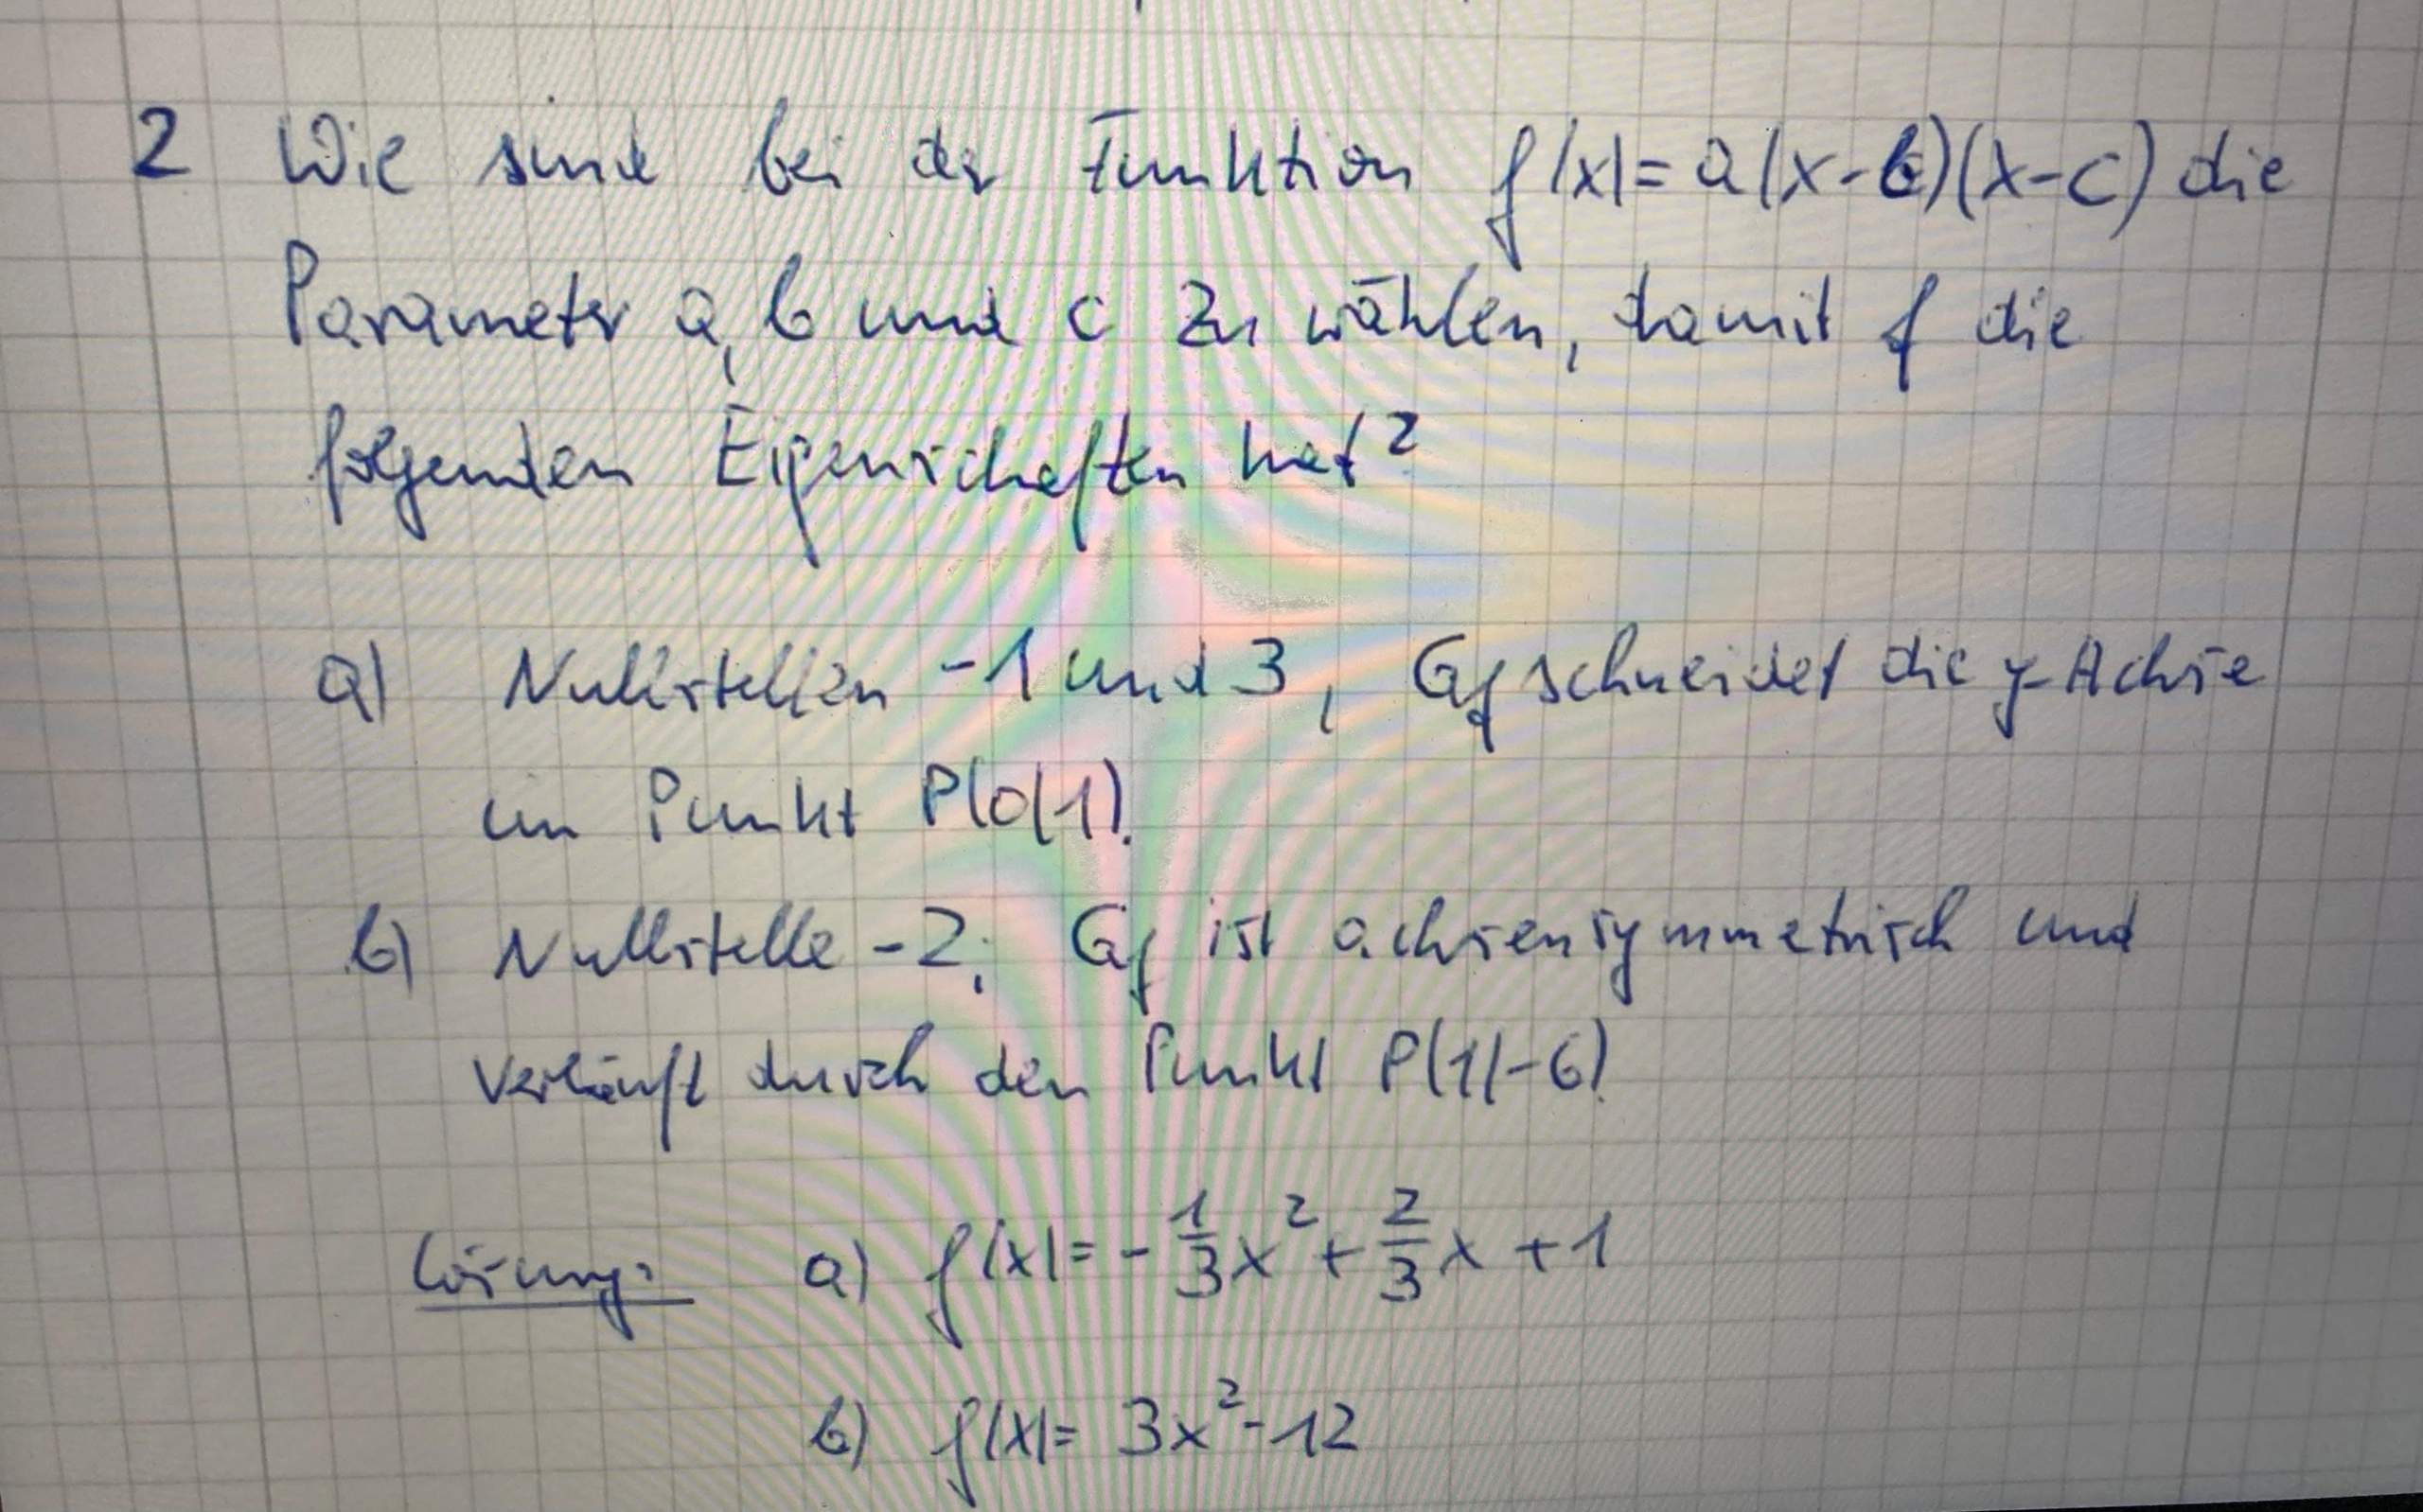 2 Wie sind bei der Funktion f(x)=a(x-b)(x-c) die
Parameter a, b und c zu wählen, damit f die
folgenden Eigenschaften hat?
a) Nullstellen -1 und 3, Gf schneidet die y-Achse
im Punkt P(0|1).
b) Nullstelle -2; Gf ist achsensymmetrisch und
verläuft durch den Punkt P(1|-6).
Lösung: a) f(x)= -1/3x²+2/3x+1
b) f(x)= 3x²-12